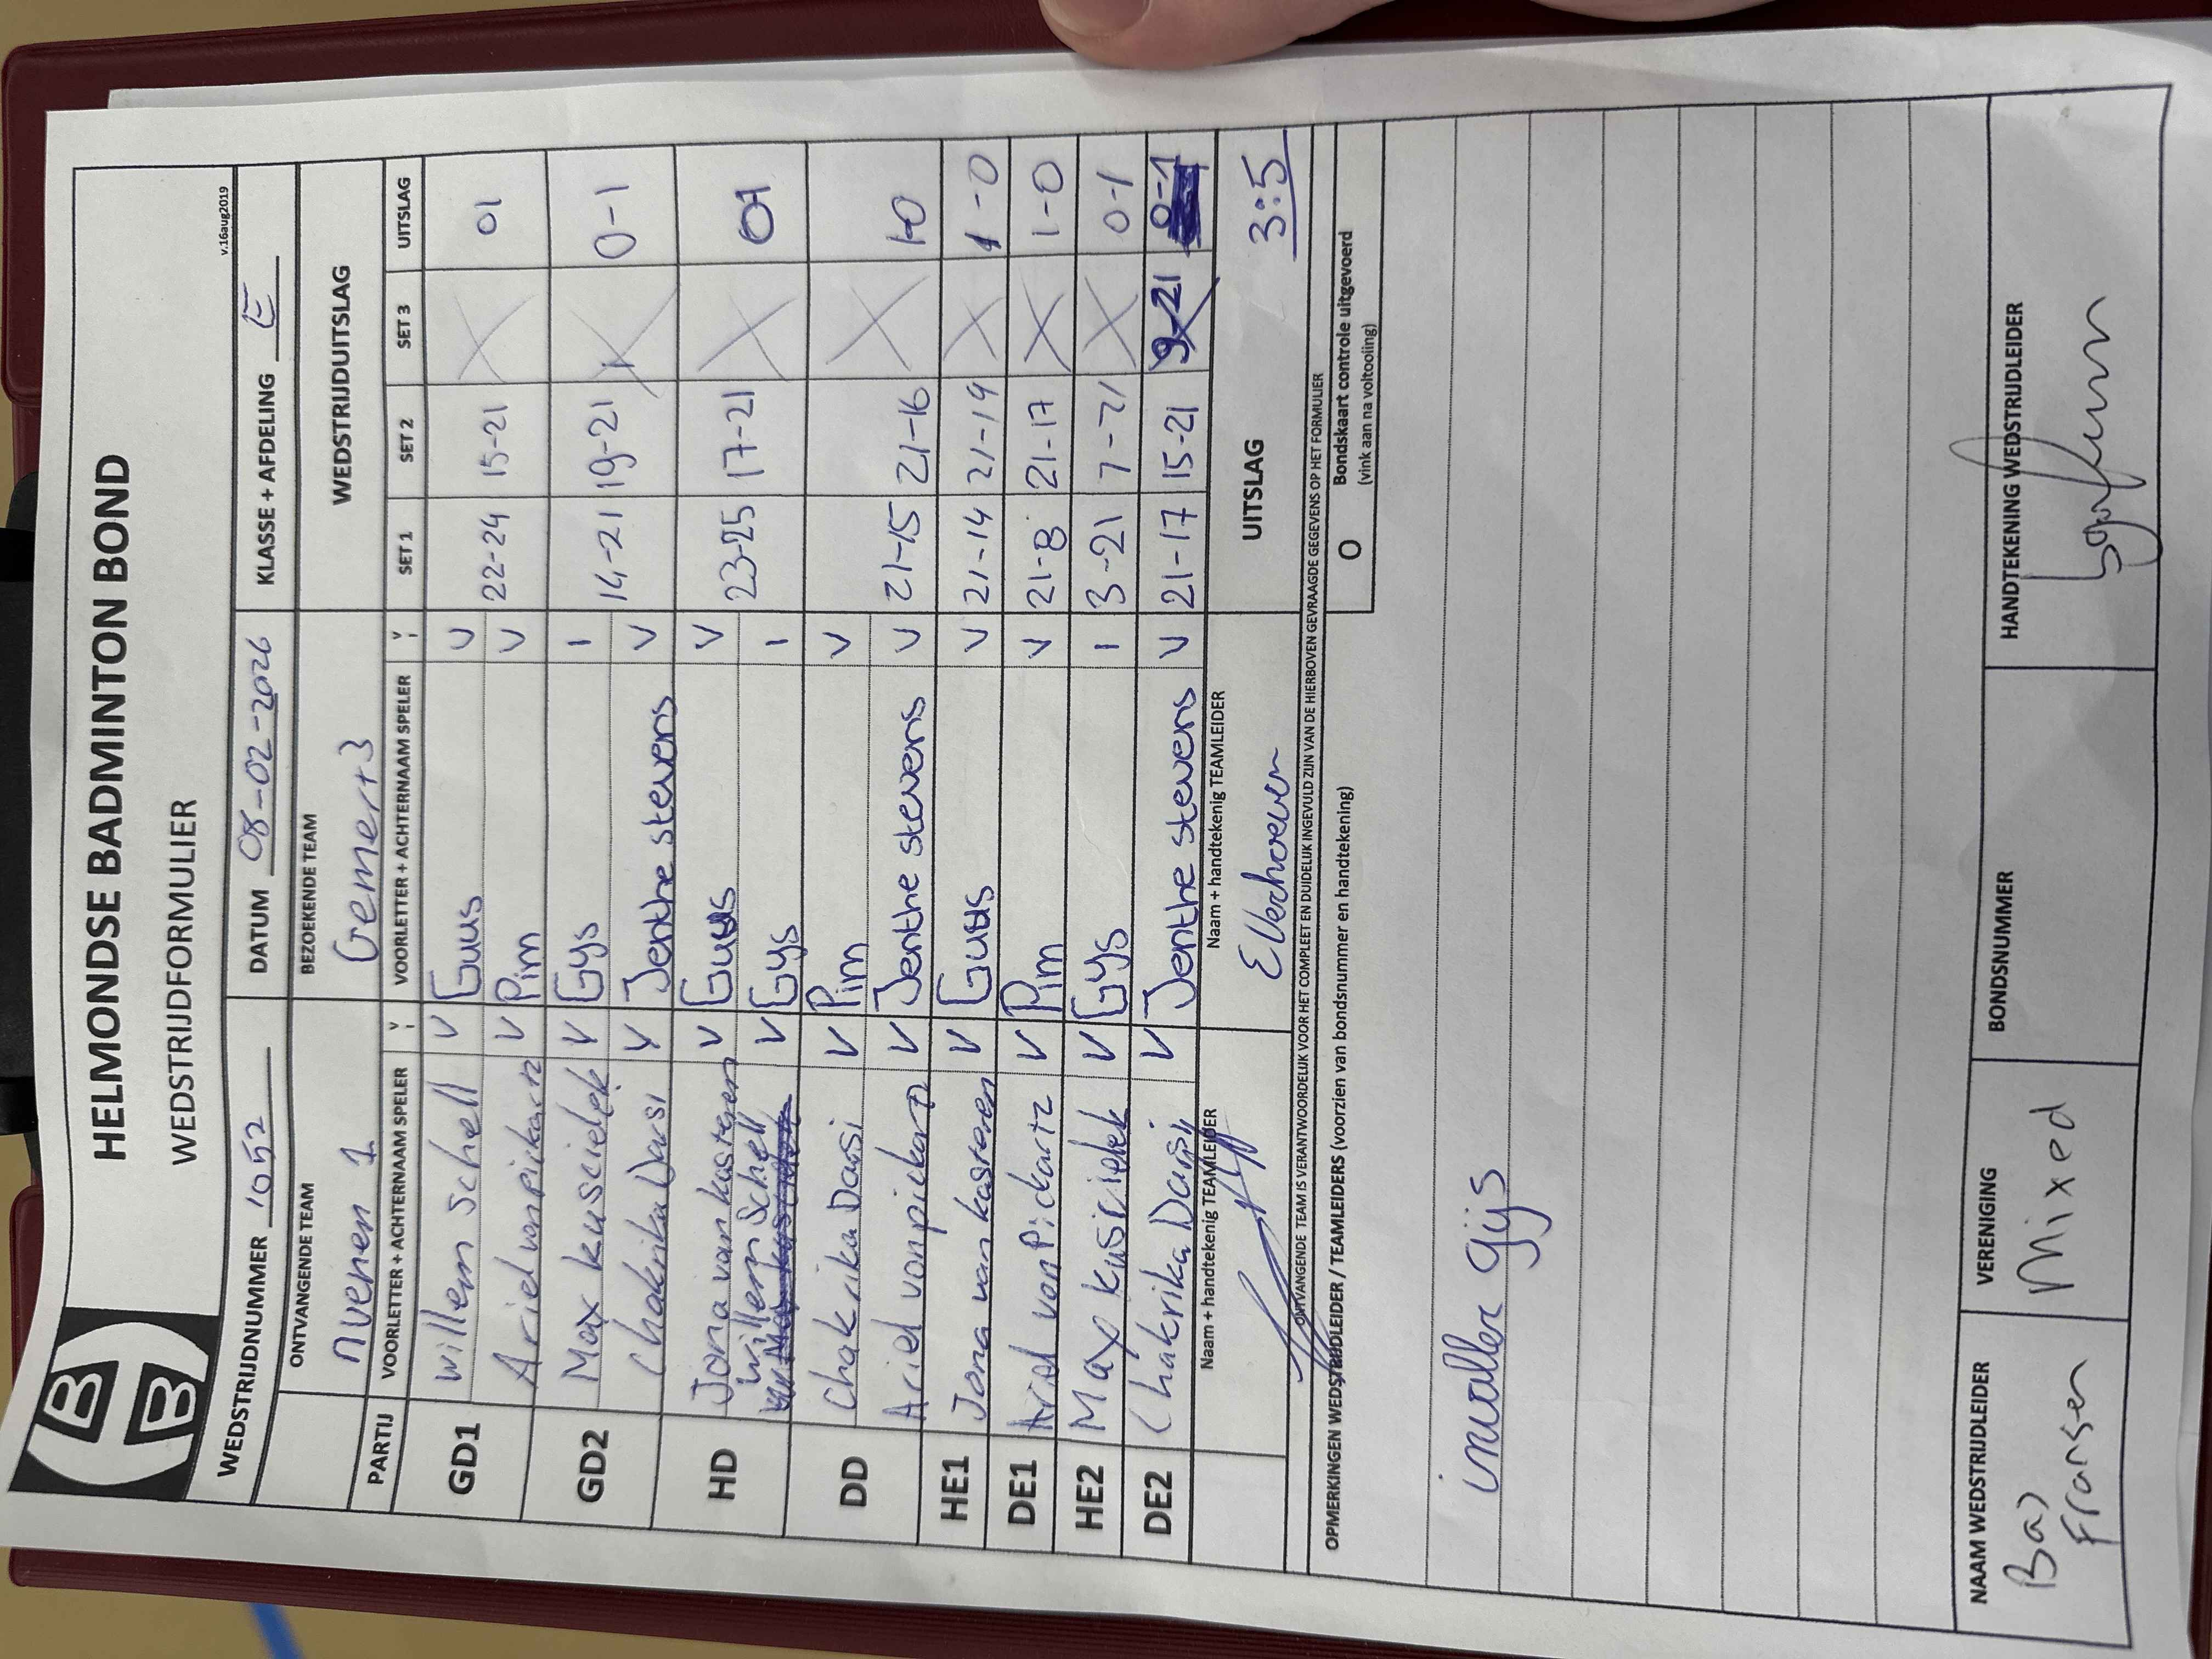 HELMONDSE BADMINTON BOND
WEDSTRIJDFORMULIER
v.16aug2019
WEDSTRIJDNUMMER 1052 DATUM 08-02-2026 KLASSE + AFDELING E
ONTVANGENDE TEAM BEZOEKENDE TEAM WEDSTRIJDUITSLAG
nuenen 1 Gemert 3
PARTIJ VOORLETTER + ACHTERNAAM SPELER VOORLETTER + ACHTERNAAM SPELER SET 1 SET 2 SET 3 UITSLAG
GD1 willem schell V Guus V
Ariel von pickartz V Pim V 22-24 15-21 X 01
GD2 Max kuscielek V Gys I
Chakrika Darsi V Jenthe stevens V 14-21 19-21 X 0-1
HD Jona van kasteren V Guus V
willem Schell V Gys I 23-25 17-21 X 01
DD Chakrika Darsi V Pim V
Ariel von pickartz V Jenthe stevens V 21-15 21-16 X 1-0
HE1 Jona van kasteren V Guus V 21-14 21-19 X 1-0
DE1 Ariel von Pickartz V Pim V 21-8 21-17 X 1-0
HE2 Max kusicielek V Gys I 3-21 7-21 X 0-1
DE2 Chakrika Darsi V Jenthe stevens V 21-17 15-21 9-21 0-1
Naam + handtekenig TEAMLEIDER Naam + handtekenig TEAMLEIDER UITSLAG 3:5
EVerhoeven
ONTVANGENDE TEAM IS VERANTWOORDELIJK VOOR HET COMPLEET EN DUIDELIJK INGEVULD ZIJN VAN DE HIERBOVEN GEVRAAGDE GEGEVENS OP HET FORMULIER
OPMERKINGEN WEDSTRIJDLEIDER / TEAMLEIDERS (voorzien van bondsnummer en handtekening)
O Bondskaart controle uitgevoerd
(vink aan na voltooiing)
invaller Gijs
NAAM WEDSTRIJDLEIDER VERENIGING BONDSNUMMER HANDTEKENING WEDSTRIJDLEIDER
Bas
Fransen
Mixed